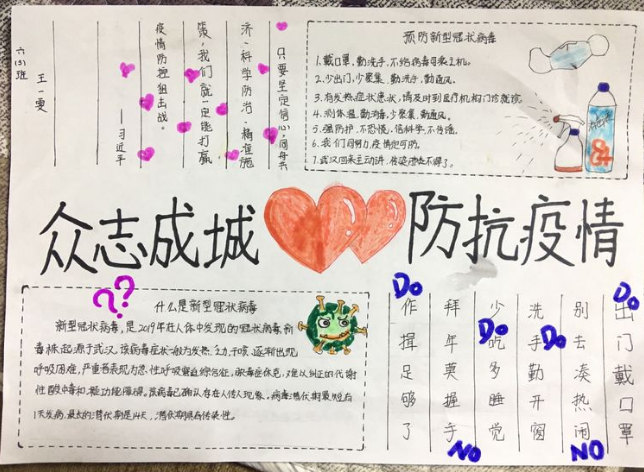 六(3)班
王一雯
只要坚定信心,同舟共
济,科学防治,精准施
策,我们就一定能打赢
疫情防控阻击战。
——习近平
预防新型冠状病毒
1.戴口罩,勤洗手,不给病毒
2.少出门,少聚集,勤洗手,勤通风。
3.有发热症状患状,请及时到医疗机构门诊就诊。
4.测体温,勤消毒,少聚集,勤通风。
5.强防护,不恐慌,信科学,不传谣。
6.我们同努力,疫情定可防。
7.武汉回来主动讲
众志成城
防抗疫情
??
什么是新型冠状病毒
新型冠状病毒,是2019年在人体中发现的冠状病毒新
毒株,起源于武汉,该病毒症状一般为发热、乏力、干咳,逐渐出现
呼吸困难,严重者表现为急性呼吸窘迫综合征,脓毒症休克,难以纠正的代谢
性酸中毒和凝功能障碍,该病毒已确认存在人传人现象,病毒潜伏期最短
1天发病,最长的潜伏期是14天,潜伏期具有传染性。
Do
出门戴口罩
别去凑热闹
NO
Do
洗手勤开窗
Do
少吃多睡觉
拜年莫握手
NO
Do
作揖足够了